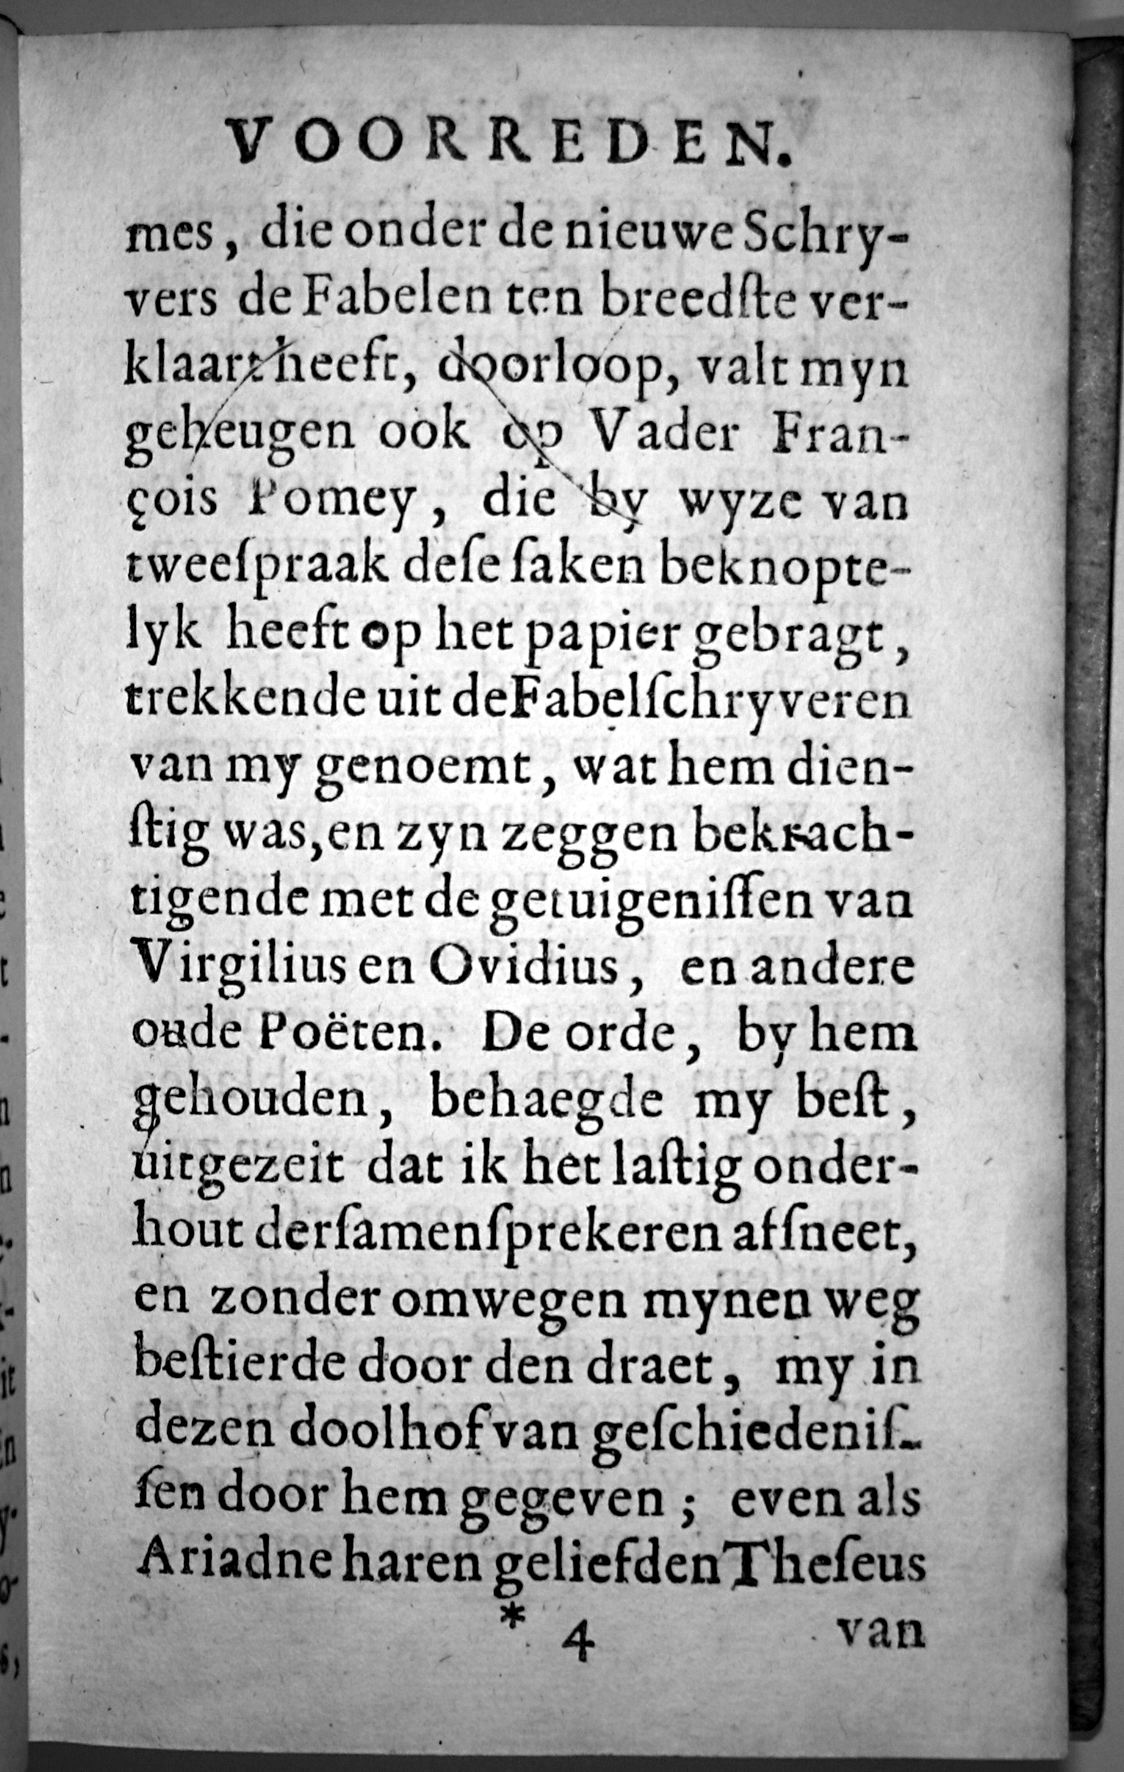 VOORREDEN.
mes, die onder de nieuwe Schry-
vers de Fabelen ten breedſte ver-
klaart heeft, doorloop, valt myn
geheugen ook op Vader Fran-
çois Pomey, die by wyze van
tweeſpraak deſe ſaken beknopte-
lyk heeft op het papier gebragt,
trekkende uit de Fabelſchryveren
van my genoemt, wat hem dien-
ſtig was, en zyn zeggen bekrach-
tigende met de getuigeniſſen van
Virgilius en Ovidius, en andere
oude Poëten. De orde, by hem
gehouden, behaegde my beſt,
uitgezeit dat ik het laſtig onder-
hout der ſamenſprekeren afſneet,
en zonder omwegen mynen weg
beſtierde door den draet, my in
dezen doolhof van geſchiedeniſ-
ſen door hem gegeven; even als
Ariadne haren geliefden Theſeus
* 4 van